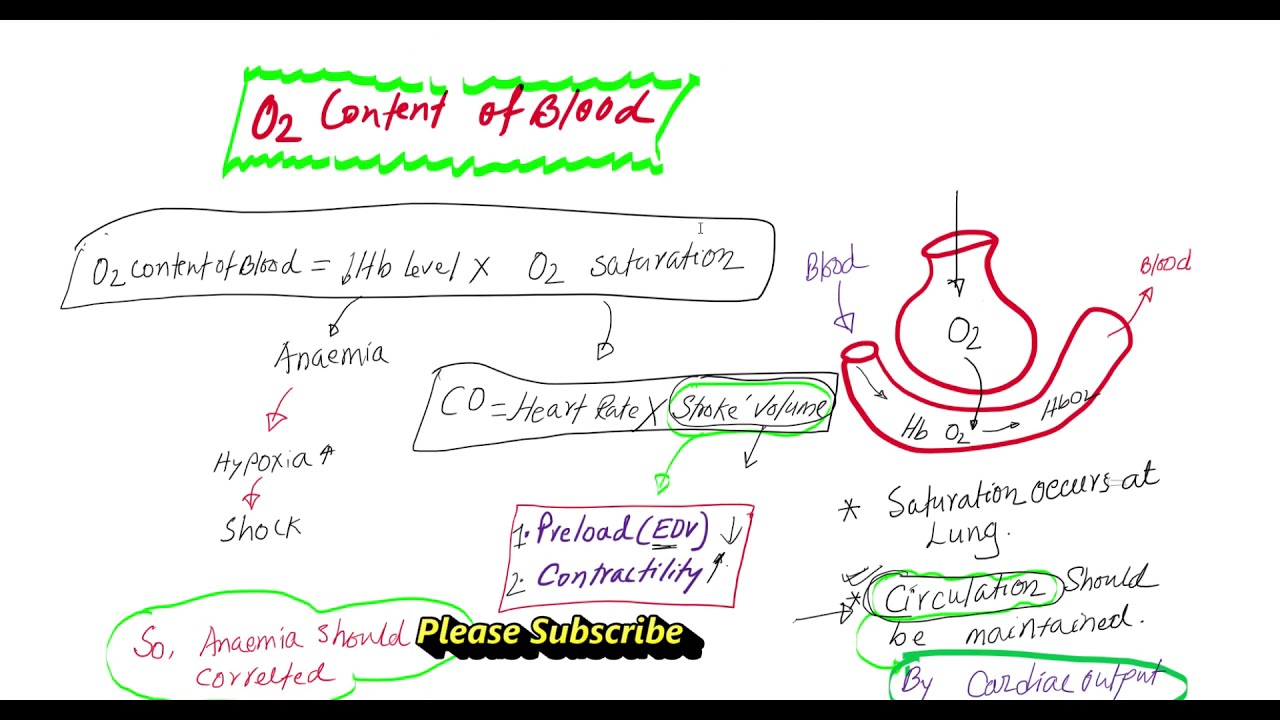 O2 Content of Blood
O2 content of Blood = ↓Hb level X O2 saturation
Anaemia
Hypoxia ↑
Shock
CO = Heart Rate X Stroke Volume
1. Preload (EDV) ↓
2. Contractility ↑
So, Anaemia should
corrected
Please Subscribe
Blood
Blood
O2
Hb O2 → HbO2
* Saturation occurs at
Lung.
* Circulation Should
be maintained.
By Cardiac output